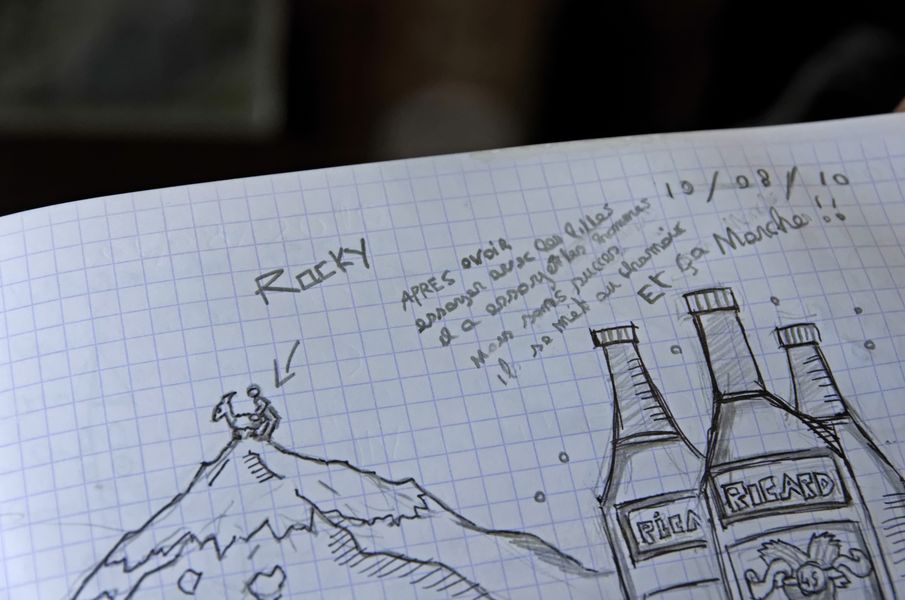 10/08/10
ROCKY
APRES avoir
essayer avec les filles
il a essayer les hommes
Mais sans succes
il se met au chamois
Et ça Marche !!
RICARD
RICARD
45